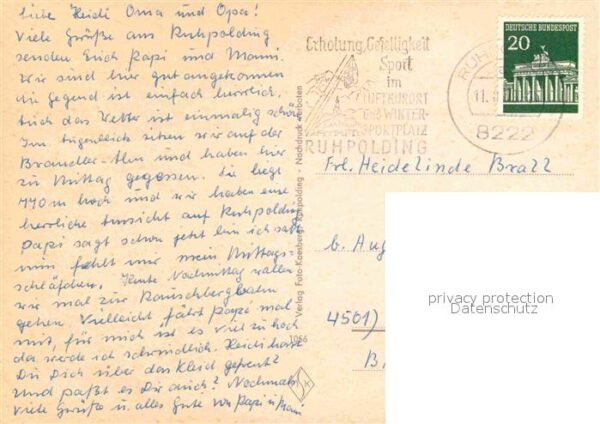 Liebe Heidi Oma und Opa!
Viele Grüße aus Ruhpolding
senden Euch Papi und Mami.
Wir sind hier gut angekommen
die Gegend ist einfach herrlich.
Auch das Wetter ist einmalig schön
Im Augenblick sitzen wir auf der
Brandler-Alm und haben hier
zu Mittag gegessen. Sie liegt
1140 m hoch und wir haben eine
herrliche Aussicht auf Ruhpolding
Papi sagt schon jetzt bin ich satt
nun fehlt mir mein Mittags-
schläfchen. Heute Nachmittag wollen
wir mal zur Rauschbergbahn
gehen. Vielleicht fährt Papi mal
mit, für mich ist es viel zu hoch
da werde ich schwindlich. Heidi hast
Du Dich über das Kleid gefreut?
Und paßt es Dir auch? Nochmals
viele Grüße u. alles Gute von Papi u. Mami
Verlag Foto-Koesberg, Ruhpolding - Nachdruck verboten
1056
Erholung, Geselligkeit
Sport
im
LUFTKURORT
UND WINTER-
SPORTPLATZ
RUHPOLDING
RUH
11.
8222
DEUTSCHE BUNDESPOST
20
Frl. Heidelinde
b. Aug
4501)
B.
privacy protection
Datenschutz